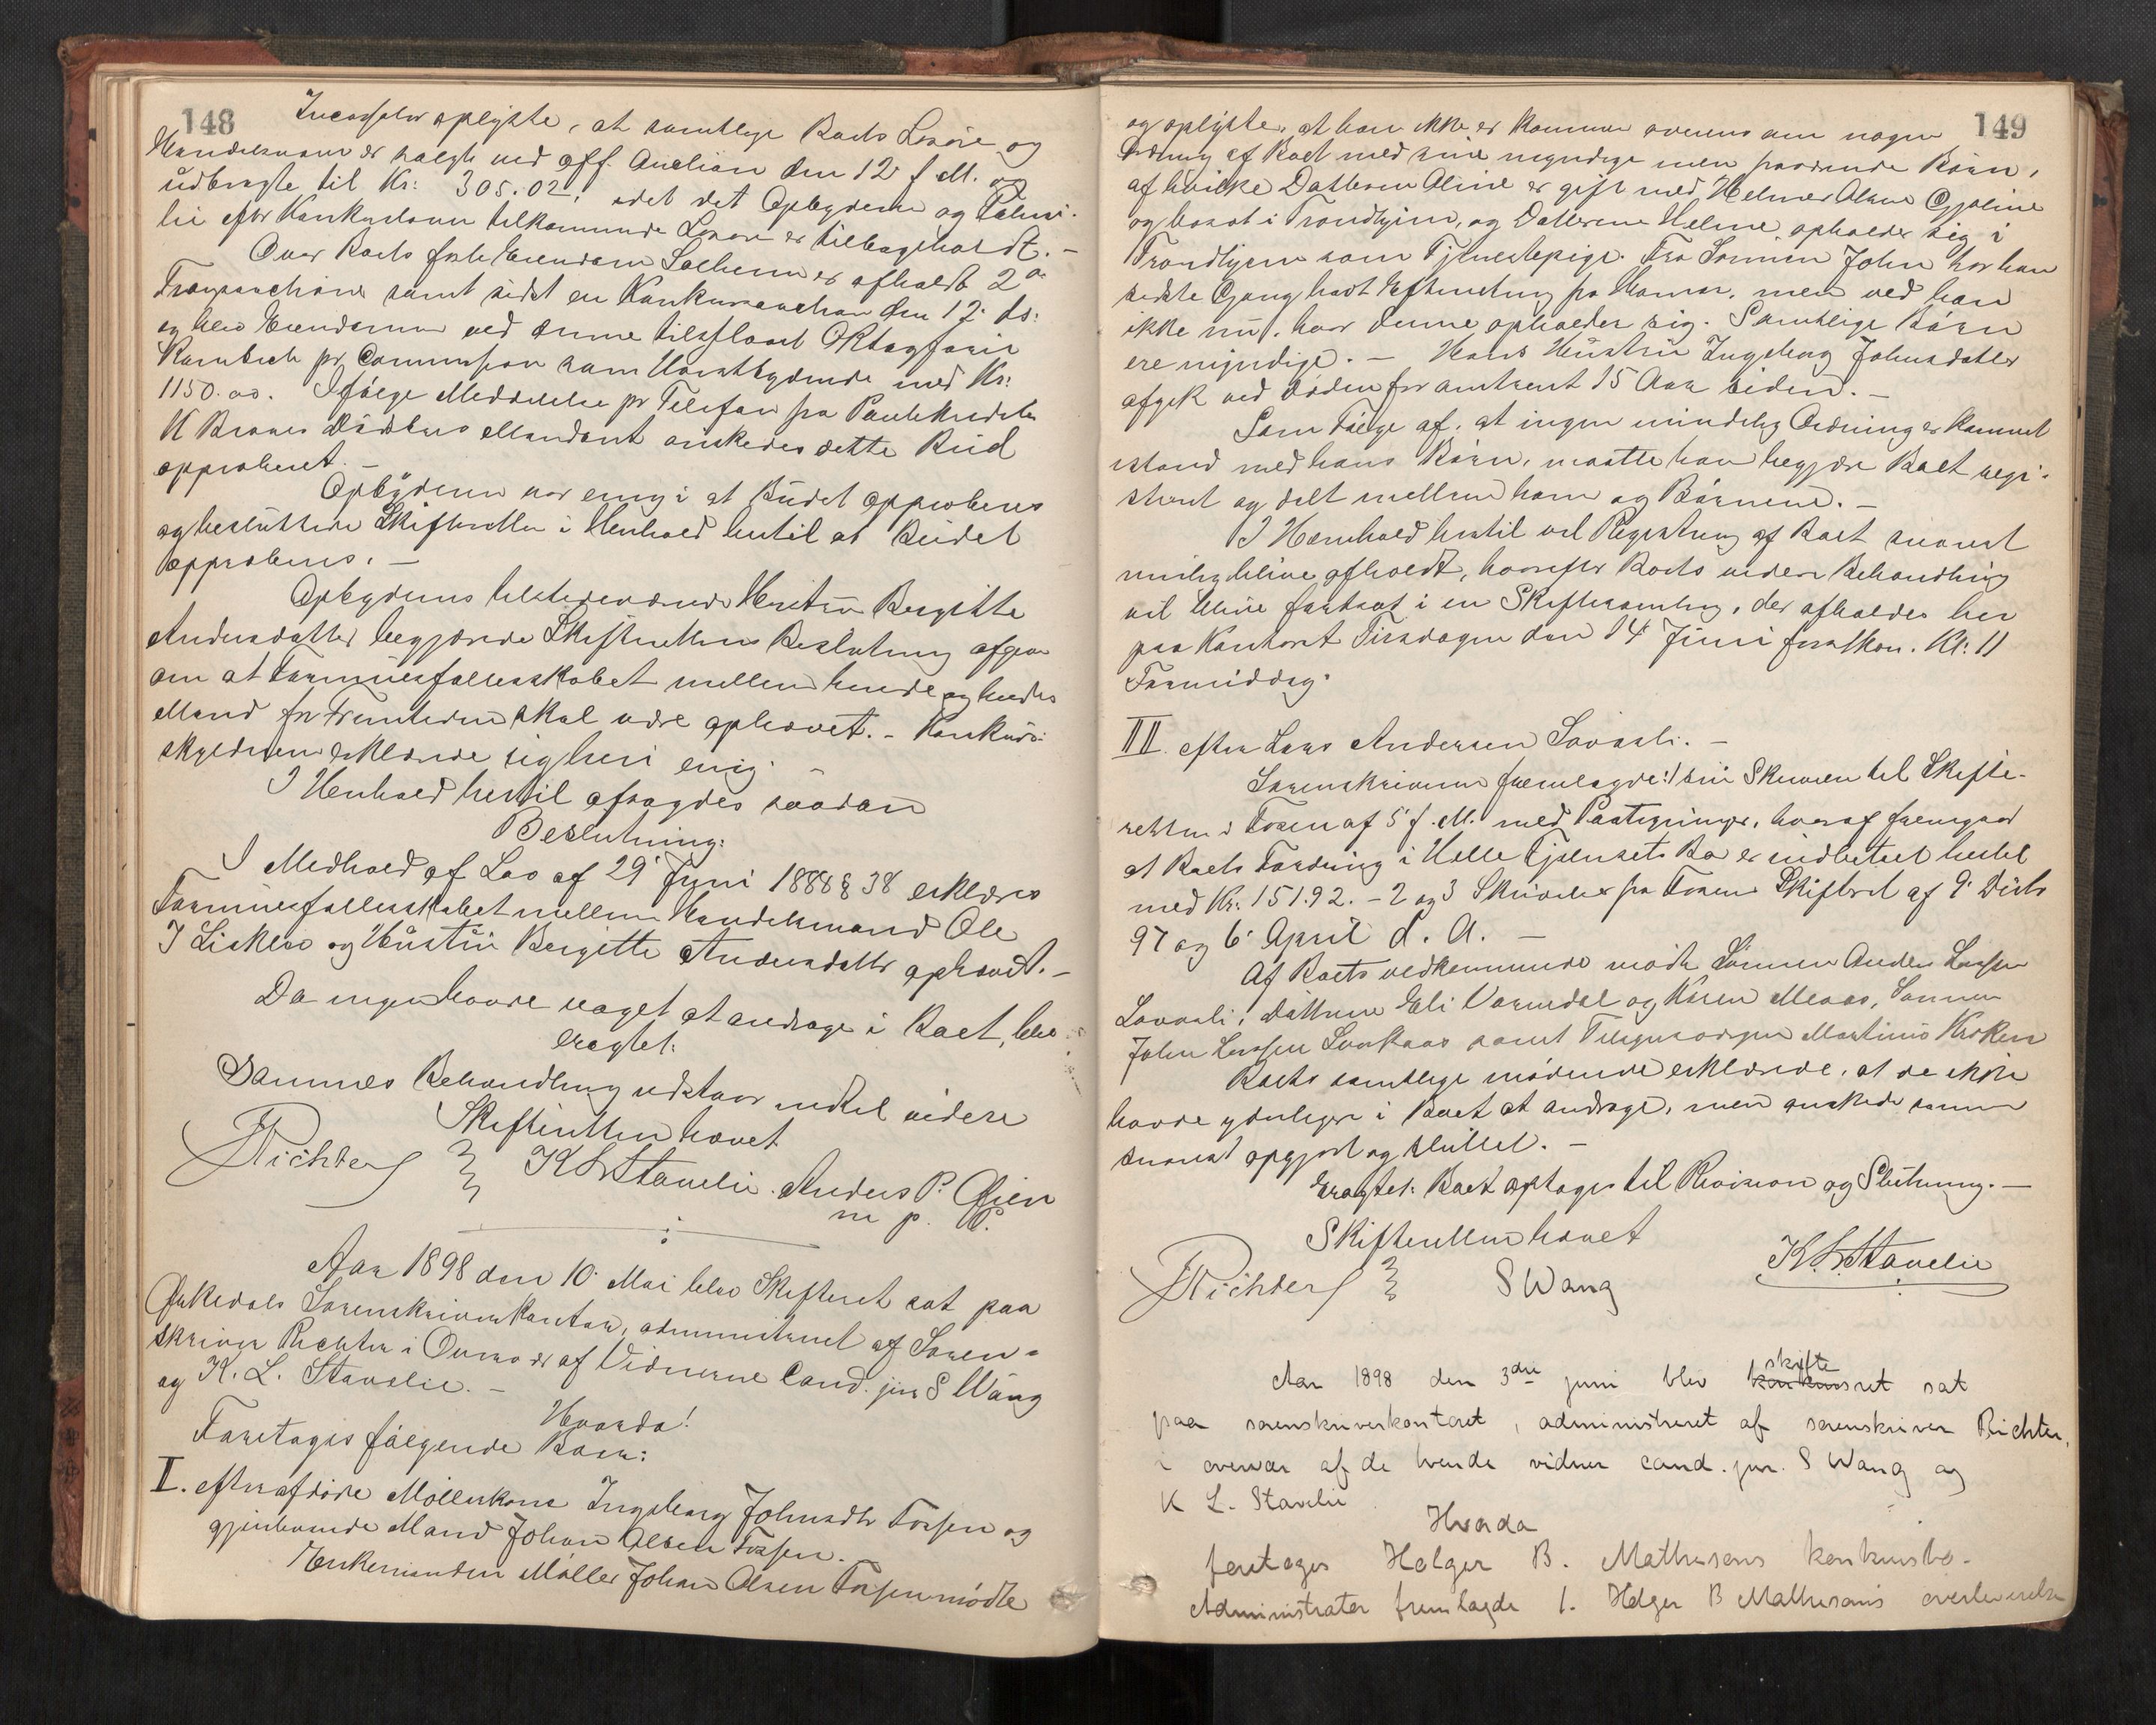 148
Incassator oplyste, at samtlige Boets Løsøre og
Handelsvarer er solgte ved off. Auction den 12 f. M. og
udbragte til Kr: 305.02, idet det Opbyderen og Fami-
lie efter Konkursloven tilkommende Løsøre er tilbageholdt. -
Over Boets faste Eiendom Solheim er afholdt 2de
Tvangsauctioner samt sidst en Konkursauction den 12 ds:
og blev Eiendommen ved denne tilslaaet
pr Commission som Høistbydende med Kr:
1150.00. Ifølge Meddelelse pr Telefon fra
Mandant ønskedes dette Bud
approberet. -
Opbyderen var enig i at Budet approberes
og besluttede Skifteretten i Henhold hertil at Budet
approberes. -
Opbyderens tilstedeværende Hustru Bergitte
Andersdatter begjærede Skifterettens Beslutning afgiven
om at Formuesfællesskabet mellem hende og hendes
Mand for Fremtiden skal være ophævet. - Konkurs-
skyldneren erklærede sig heri enig. -
I Henhold hertil afsagdes saadan
Beslutning:
I Medhold af Lov af 29 Juni 1888 § 38 erklæres
Formuesfællesskabet mellem Handelsmand Ole
J Liskleo og Hustru Bergitte Andersdatter ophævet. -
Da ingen havde noget at andrage i Boet, blev
eragtet:
Sammes Behandling udstaar indtil videre
Skifteretten hævet
Richter K L Stavelie. Anders P. Øien
m p. P.
Aar 1898 den 10 Mai blev Skifteret sat paa
Orkedals Sorenskriverkontor, administreret af Soren-
skriver Richter i Overvær af Vidnerne Cand. jur S Wang
og K. L. Stavelie. -
Hvorda!
Foretoges følgende Boer:
I. efter afdøde Møllerkone Ingeborg Johnsdtr Forsen og
gjenlevende Mand Johan Olsen Forsen. -
Enkemanden Møller Johan Olsen Forsen mødte
149
og oplyste, at han ikke er kommen overens om nogen
Ordning af Boet med sine myndige men fraværende Børn,
af hvilke Datteren Oline er gift med Helmer Olsen Gjøline
og bosat i Trondhjem, og Datteren Helene opholder sig i
Trondhjem som Tjenestepige. Fra Sønnen John har han
sidste Gang havt Efterretning fra Hamar, men ved han
ikke nu, hvor denne opholder sig. Samtlige Børn
ere myndige. - Hans Hustru Ingeborg Johnsdatter
afgik ved Døden for omtrent 15 Aar siden. -
Som Følge af, at ingen mindelig Ordning er kommet
istand med hans Børn, maatte han begjære Boet regi-
streret og delt mellem ham og Børnene. -
I Henhold hertil vil Registrering af Boet snarest
mulig blive afholdt, hvorefter Boets videre Behandling
vil blive fortsat i en Skiftesamling, der afholdes her
paa Kontoret Tirsdagen den 14 Juni førstkom. Kl: 11
Formiddag.
II. efter Lars Andersen Sovasli. -
Sorenskriveren fremlagde: 1 sin Skrivelse til Skifte-
retten i Fosen af 5 f. M. med Paategninger, hvoraf fremgaar
at Boets Fordring i Helle Bo er indbetalt hertil
med Kr: 151.92. - 2 og 3 Skrivelser fra Fosens Skifteret af 9 Debr
97 og 6 April d. A. -
Af Boets vedkommende mødte Sønnen Anders Larsen
Sovasli, Døttrene Eli Vormdal og Karen Moaas, Sønnen
John Larsen Svorkaas samt Tilsynsværgen Martinus Kroken
Boets samtlige mødende erklærede, at de ikke
havde yderligere i Boet at andrage, men ønskede samme
snarest opgjort og sluttet. -
Eragtet: Boet optages til Revision og Slutning. -
Skifteretten hævet
Richter S Wang K. L. Stavelie
Aar 1898 den 3die juni blev skifteret sat
paa sorenskriverkontoret, administreret af sorenskriver Richter,
i overvær af de tvende vidner cand. jur. S Wang og
K L. Stavelie.
Hvorda
foretoges Holger B. Mathesens konkursbo.
Administrator fremlagde 1. Holger B Mathesens overleverelse